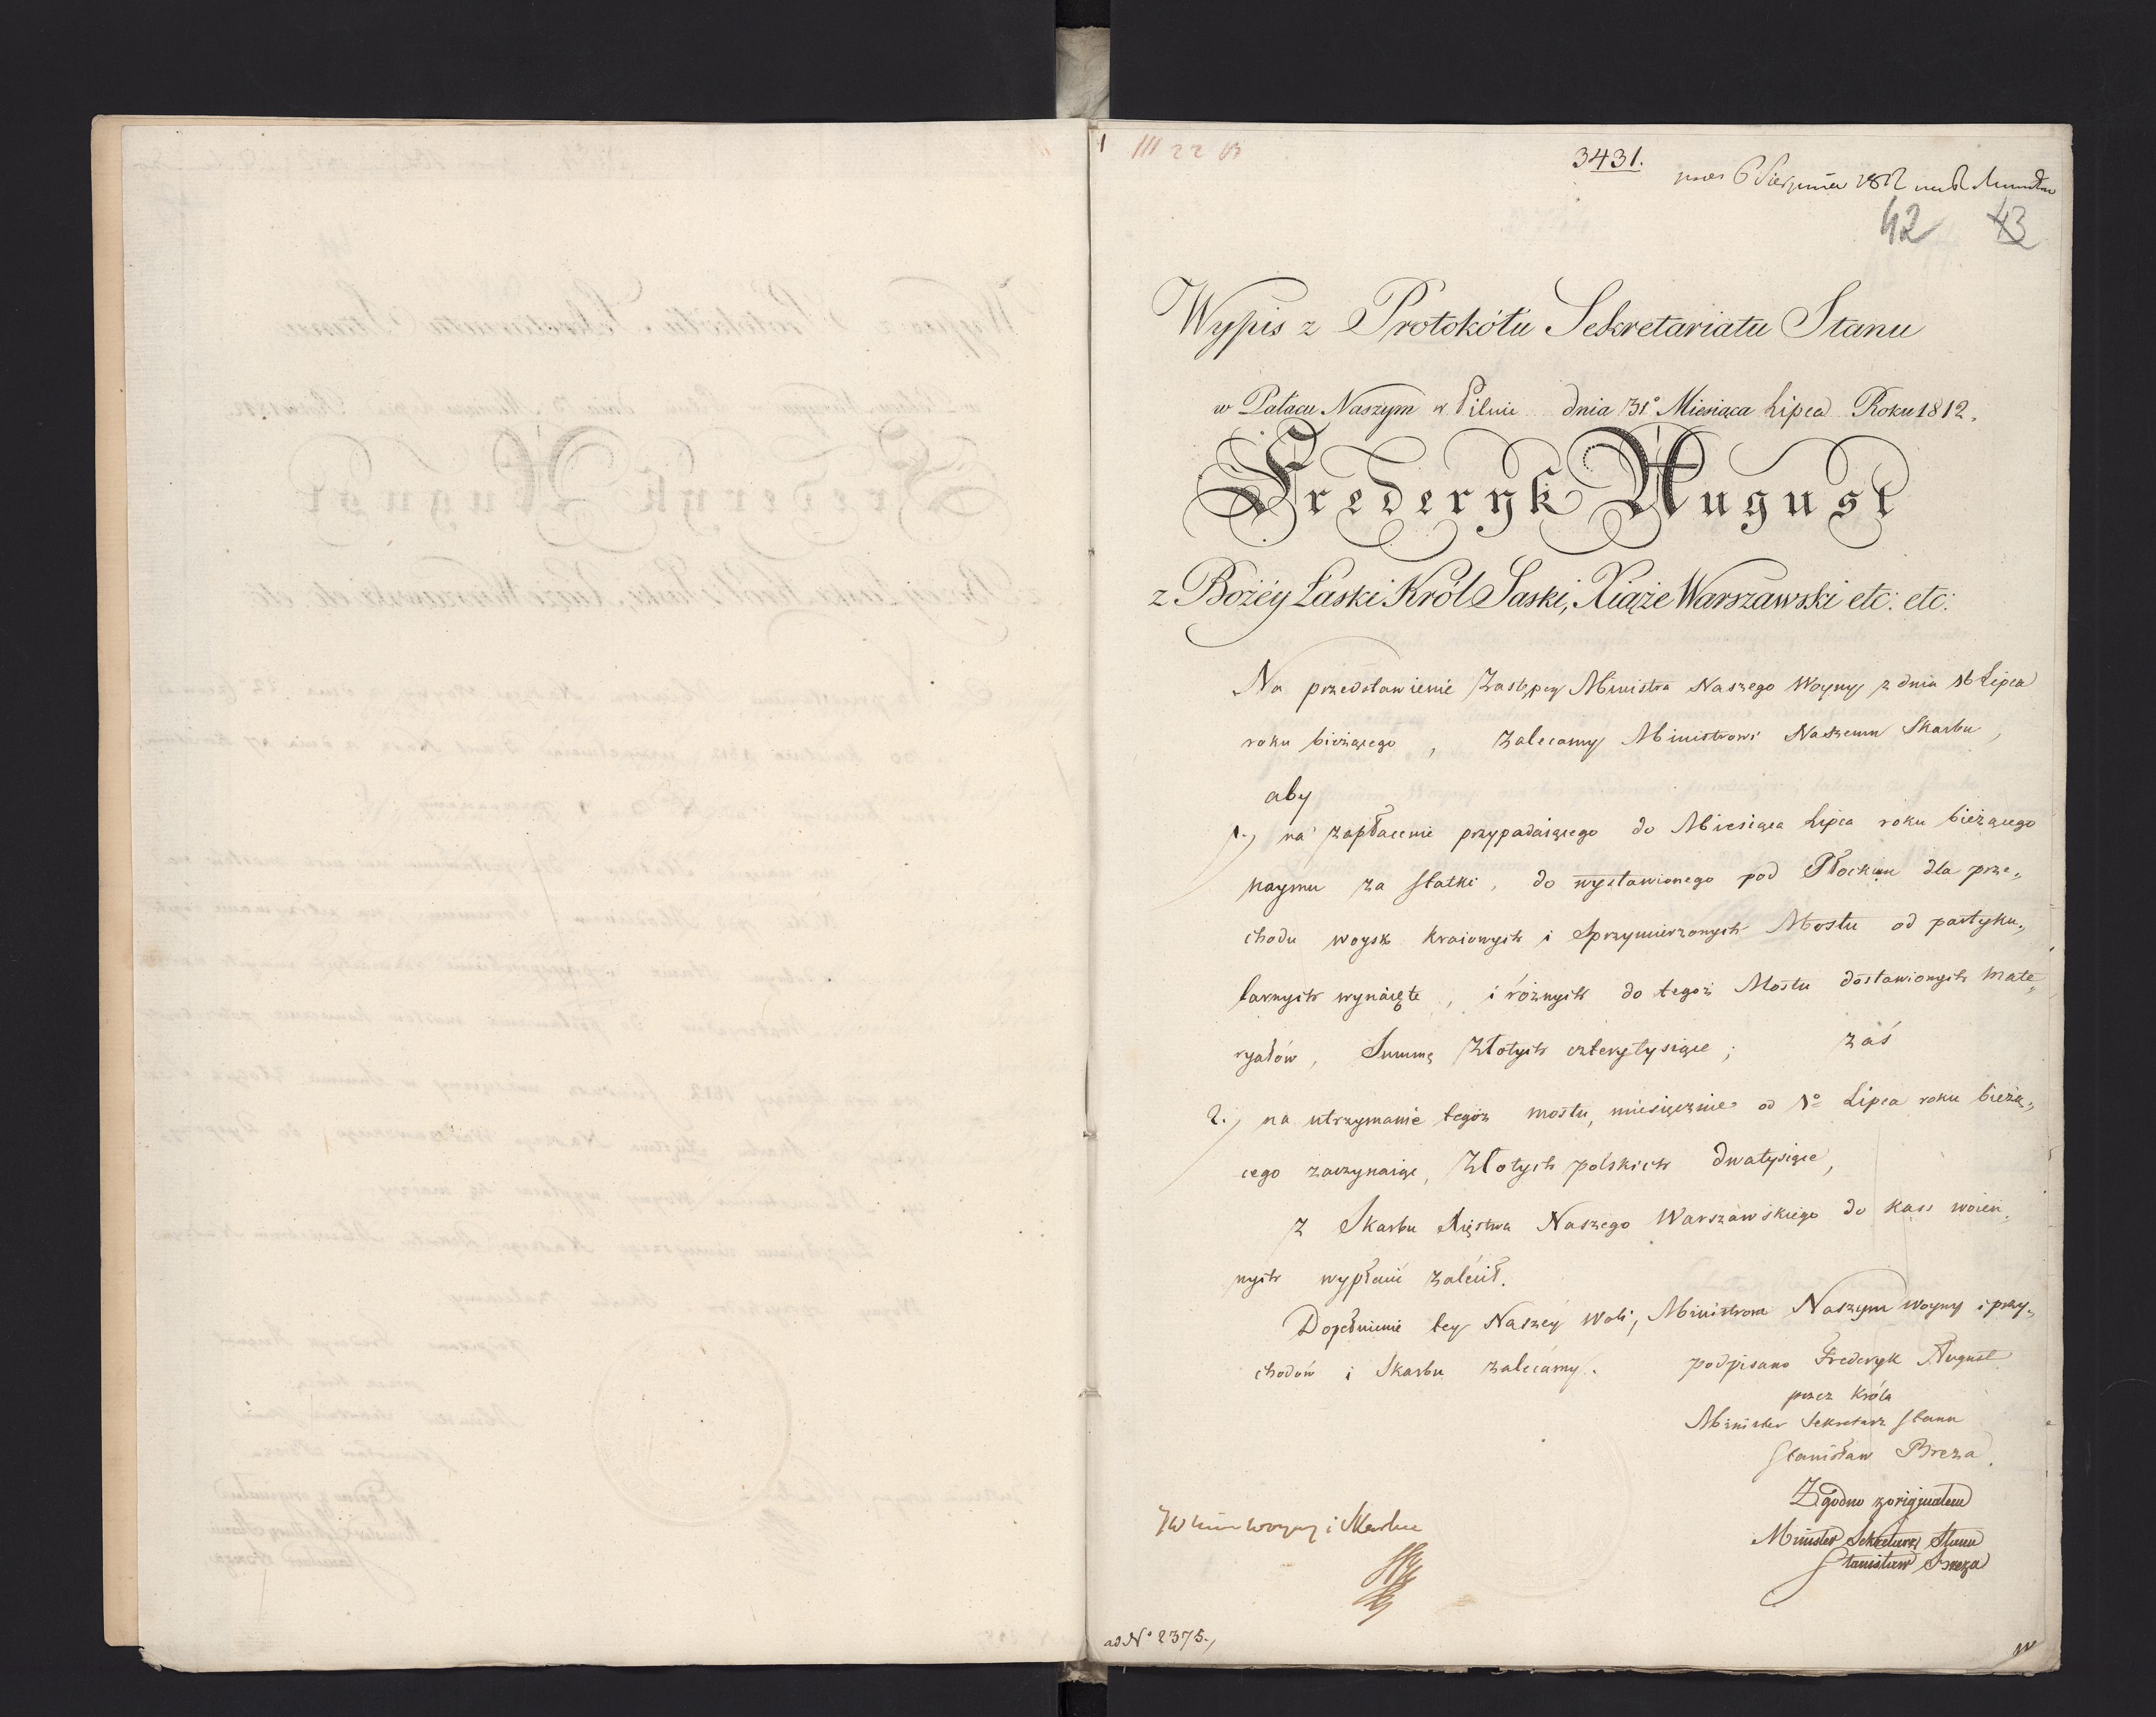 III 22
3431.
6 Sierpnia 1812
42 43
Wypis z Protokółu Sekretariatu Stanu
w Pałacu Naszym w Pilnie dnia 31º Miesiąca Lipca Roku 1812.
Frederyk August
z Bożéy Łaski Król Saski, Xiąże Warszawski etc: etc:
Na przedstawienie Zastępcy Ministra Naszego Woyny z dnia 16 Lipca
roku bieżącego, Zalecamy Ministrowi Naszemu Skarbu,
aby
1., na zapłacenie przypadaiącego do Miesiąca Lipca roku bieżącego
naymu za statki, do wystawionego pod Płockiem dla prze„
chodu woysk kraiowych i Sprzymierzonych Mostu od partyku„
larnych wynaięte, i różnych do tegoż Mostu dostawionych mate„
ryałów, Summę Złotych czterytysiące; zaś
2., na utrzymanie tegoż mostu, miesięcznie od 1º Lipca roku bieżą„
cego zaczynaiąc, Złotych polskich dwatysiące,
z Skarbu Xięstwa Naszego Warszawskiego do kass woien„
nych wypłacić zalécił.
Dopełnienie tey Naszéy woli, Ministrom Naszym woyny i przy„
chodów i Skarbu zalecamy. podpisano Frederyk August
przez Króla
Minister Sekretarz Stanu
Stanisław Breza.
Zgodno z originałem
Minister Sekretarz Stanu
Stanisław Breza
woyny i Skarbu
ad Nº 2375.,